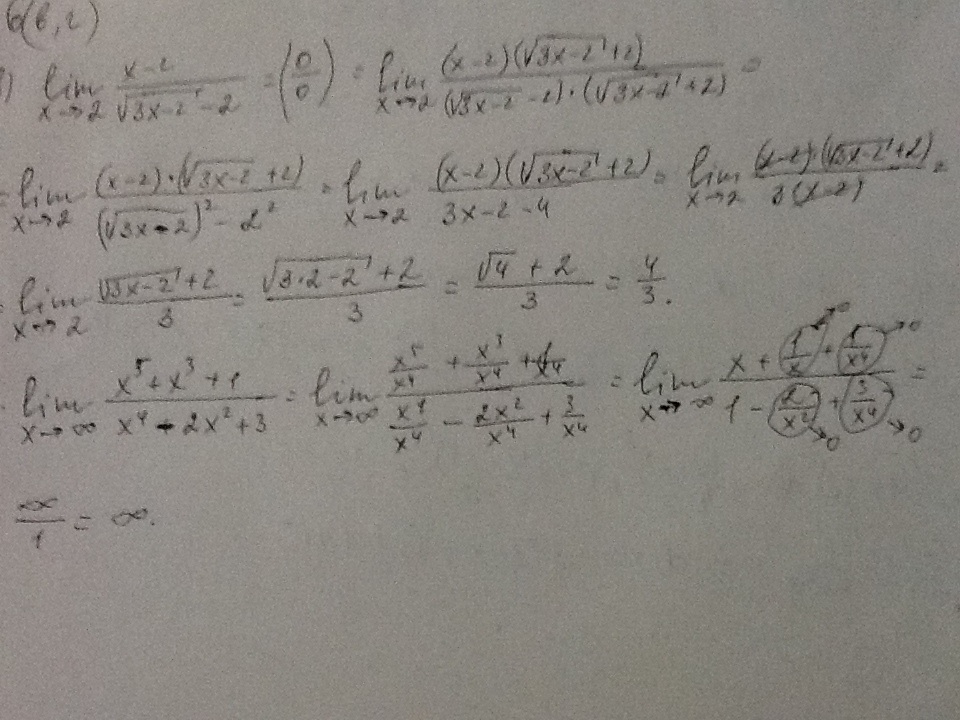 6(в, г)
) lim x→2 (x-2)/(√(3x-2) - 2) = (0/0) = lim x→2 ((x-2)(√(3x-2)+2))/((√(3x-2) - 2)·(√(3x-2)+2)) =
= lim x→2 ((x-2)·(√(3x-2)+2))/((√(3x-2))² - 2²) = lim x→2 ((x-2)(√(3x-2)+2))/(3x-2-4) = lim x→2 ((x-2)·(√(3x-2)+2))/(3(x-2)) =
= lim x→2 (√(3x-2)+2)/3 = (√(3·2-2)+2)/3 = (√4+2)/3 = 4/3.
lim x→∞ (x⁵+x³+1)/(x⁴-2x²+3) = lim x→∞ (x⁵/x⁴ + x³/x⁴ + 1/x⁴)/(x⁴/x⁴ - 2x²/x⁴ + 3/x⁴) = lim x→∞ (x + 1/x→0 + 1/x⁴→0)/(1 - 2/x²→0 + 3/x⁴→0) =
∞/1 = ∞.